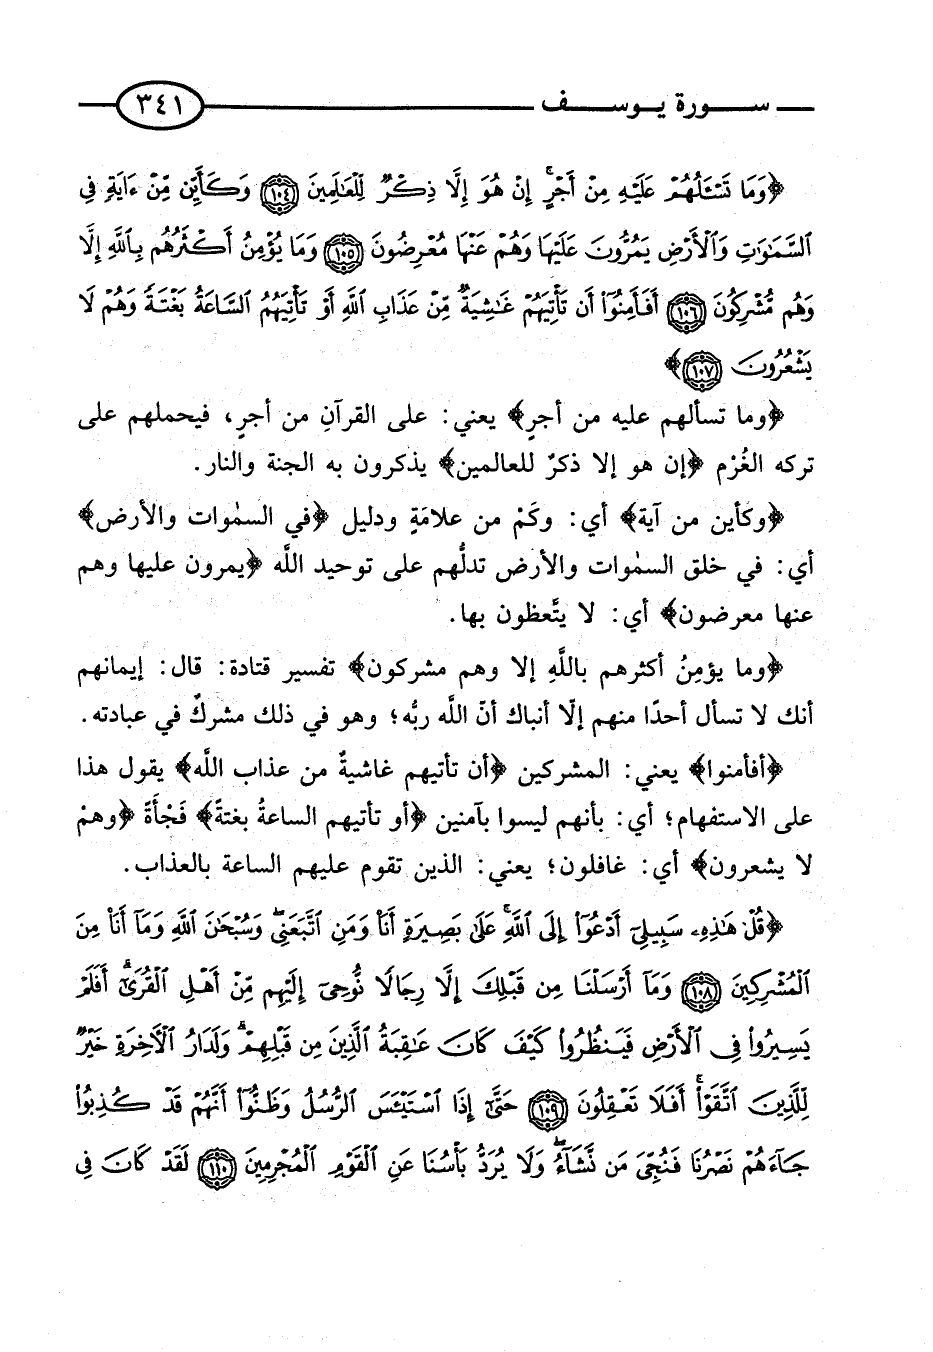 سورة يوسف ٣٤١
﴿وَمَا تَسْـَٔلُهُمْ عَلَيْهِ مِنْ أَجْرٍ ۚ إِنْ هُوَ إِلَّا ذِكْرٌ لِّلْعَٰلَمِينَ ١٠٤ وَكَأَيِّن مِّنْ ءَايَةٍ فِى
ٱلسَّمَٰوَٰتِ وَٱلْأَرْضِ يَمُرُّونَ عَلَيْهَا وَهُمْ عَنْهَا مُعْرِضُونَ ١٠٥ وَمَا يُؤْمِنُ أَكْثَرُهُم بِٱللَّهِ إِلَّا
وَهُم مُّشْرِكُونَ ١٠٦ أَفَأَمِنُوٓا۟ أَن تَأْتِيَهُمْ غَٰشِيَةٌ مِّنْ عَذَابِ ٱللَّهِ أَوْ تَأْتِيَهُمُ ٱلسَّاعَةُ بَغْتَةً وَهُمْ لَا
يَشْعُرُونَ ١٠٧﴾
﴿وما تسألهم عليه من أجرٍ﴾ يعني: على القرآنِ من أجرٍ، فيحملهم على
تركه الغُرْم ﴿إن هو إلا ذكرٌ للعالمين﴾ يذكرون به الجنة والنار.
﴿وكأين من آية﴾ أي: وكَمْ من علامَةٍ ودليل ﴿في السمٰوات والأرض﴾
أي: في خلق السمٰوات والأرض تدلُّهم على توحيد اللَّه ﴿يمرون عليها وهم
عنها معرضون﴾ أي: لا يتَّعظون بها.
﴿وما يؤمِنُ أكثرهم باللَّهِ إلا وهم مشركون﴾ تفسير قتادة: قال: إيمانهم
أنك لا تسأل أحدًا منهم إلّا أنباك أنّ اللَّه ربُّه؛ وهو في ذلك مشركٌ في عبادته.
﴿أفأمنوا﴾ يعني: المشركين ﴿أن تأتيهم غاشيةٌ من عذاب اللَّه﴾ يقول هذا
على الاستفهام؛ أي: بأنهم ليسوا بآمنين ﴿أو تأتيهم الساعةُ بغتةً﴾ فَجْأَةً ﴿وهمْ
لا يشعرون﴾ أي: غافلون؛ يعني: الذين تقوم عليهم الساعة بالعذاب.
﴿قُلْ هَٰذِهِۦ سَبِيلِىٓ أَدْعُوٓا۟ إِلَى ٱللَّهِ ۚ عَلَىٰ بَصِيرَةٍ أَنَا۠ وَمَنِ ٱتَّبَعَنِى ۖ وَسُبْحَٰنَ ٱللَّهِ وَمَآ أَنَا۠ مِنَ
ٱلْمُشْرِكِينَ ١٠٨ وَمَآ أَرْسَلْنَا مِن قَبْلِكَ إِلَّا رِجَالًا نُّوحِىٓ إِلَيْهِم مِّنْ أَهْلِ ٱلْقُرَىٰٓ ۗ أَفَلَمْ
يَسِيرُوا۟ فِى ٱلْأَرْضِ فَيَنظُرُوا۟ كَيْفَ كَانَ عَٰقِبَةُ ٱلَّذِينَ مِن قَبْلِهِمْ ۗ وَلَدَارُ ٱلْءَاخِرَةِ خَيْرٌ
لِّلَّذِينَ ٱتَّقَوْا۟ ۗ أَفَلَا تَعْقِلُونَ ١٠٩ حَتَّىٰٓ إِذَا ٱسْتَيْـَٔسَ ٱلرُّسُلُ وَظَنُّوٓا۟ أَنَّهُمْ قَدْ كُذِبُوا۟
جَآءَهُمْ نَصْرُنَا فَنُجِّىَ مَن نَّشَآءُ ۖ وَلَا يُرَدُّ بَأْسُنَا عَنِ ٱلْقَوْمِ ٱلْمُجْرِمِينَ ١١٠ لَقَدْ كَانَ فِى